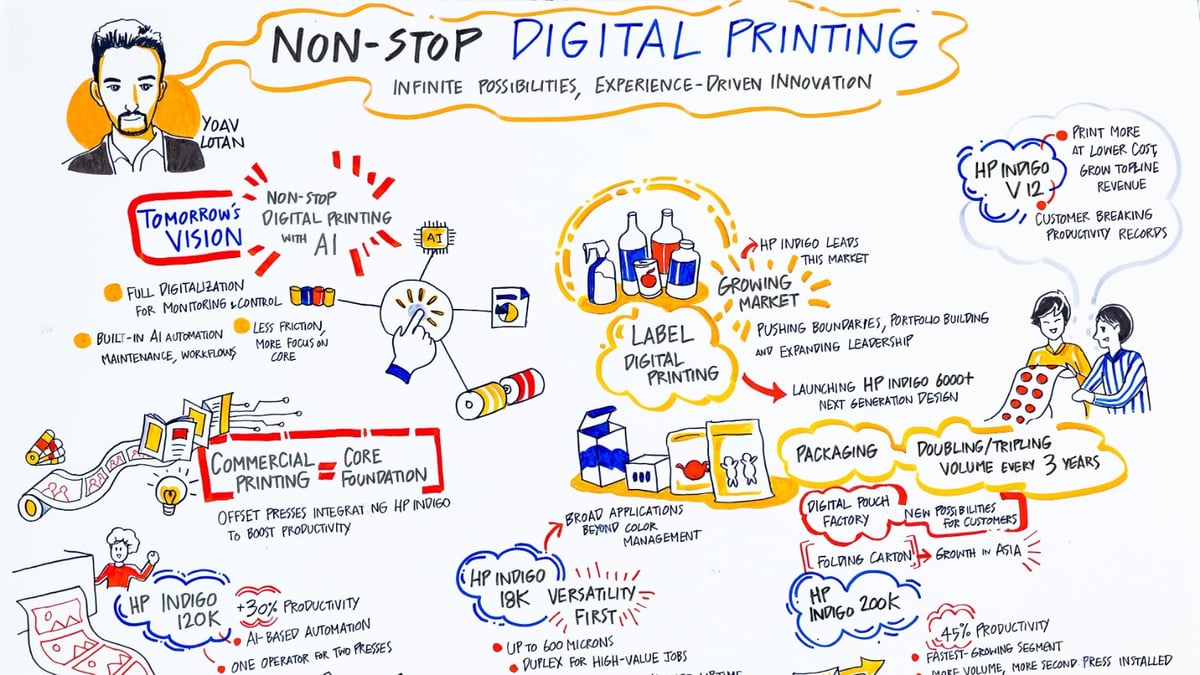 NON-STOP DIGITAL PRINTING
INFINITE POSSIBILITIES, EXPERIENCE-DRIVEN INNOVATION
YOAV
LOTAN
TOMORROW'S
VISION
NON-STOP
DIGITAL PRINTING
WITH AI
AI
FULL DIGITALIZATION
FOR MONITORING & CONTROL
BUILT-IN AI AUTOMATION
MAINTENANCE, WORKFLOWS
LESS FRICTION,
MORE FOCUS ON
CORE
COMMERCIAL
PRINTING
=
CORE
FOUNDATION
OFFSET PRESSES INTEGRAT NG HP INDIGO
TO BOOST PRODUCTIVITY
HP INDIGO
120K
+30% PRODUCTIVITY
AI-BASED AUTOMATION
ONE OPERATOR FOR TWO PRESSES
GROWING
MARKET
HP INDIGO LEADS
THIS MARKET
LABEL
DIGITAL
PRINTING
PUSHING BOUNDARIES, PORTFOLIO BUILDING
AND EXPANDING LEADERSHIP
LAUNCHING HP INDIGO 6000+
NEXT GENERATION DESIGN
HP INDIGO
V12
PRINT MORE
AT LOWER COST,
GROW TOPLINE
REVENUE
CUSTOMER BREAKING
PRODUCTIVITY RECORDS
PACKAGING
DOUBLING/TRIPLING
VOLUME EVERY 3 YEARS
DIGITAL POUCH
FACTORY
NEW POSSIBILITIES
FOR CUSTOMERS
FOLDING CARTON
GROWTH IN ASIA
BROAD APPLICATIONS
BEYOND COLOR
MANAGEMENT
HP INDIGO
18K
VERSATILITY
FIRST
UP TO 600 MICRONS
DUPLEX FOR HIGH-VALUE JOBS
HP
INDIGO 200K
45% PRODUCTIVITY
FASTEST-GROWING SEGMENT
MORE VOLUME, MORE SECOND PRESS INSTALLED